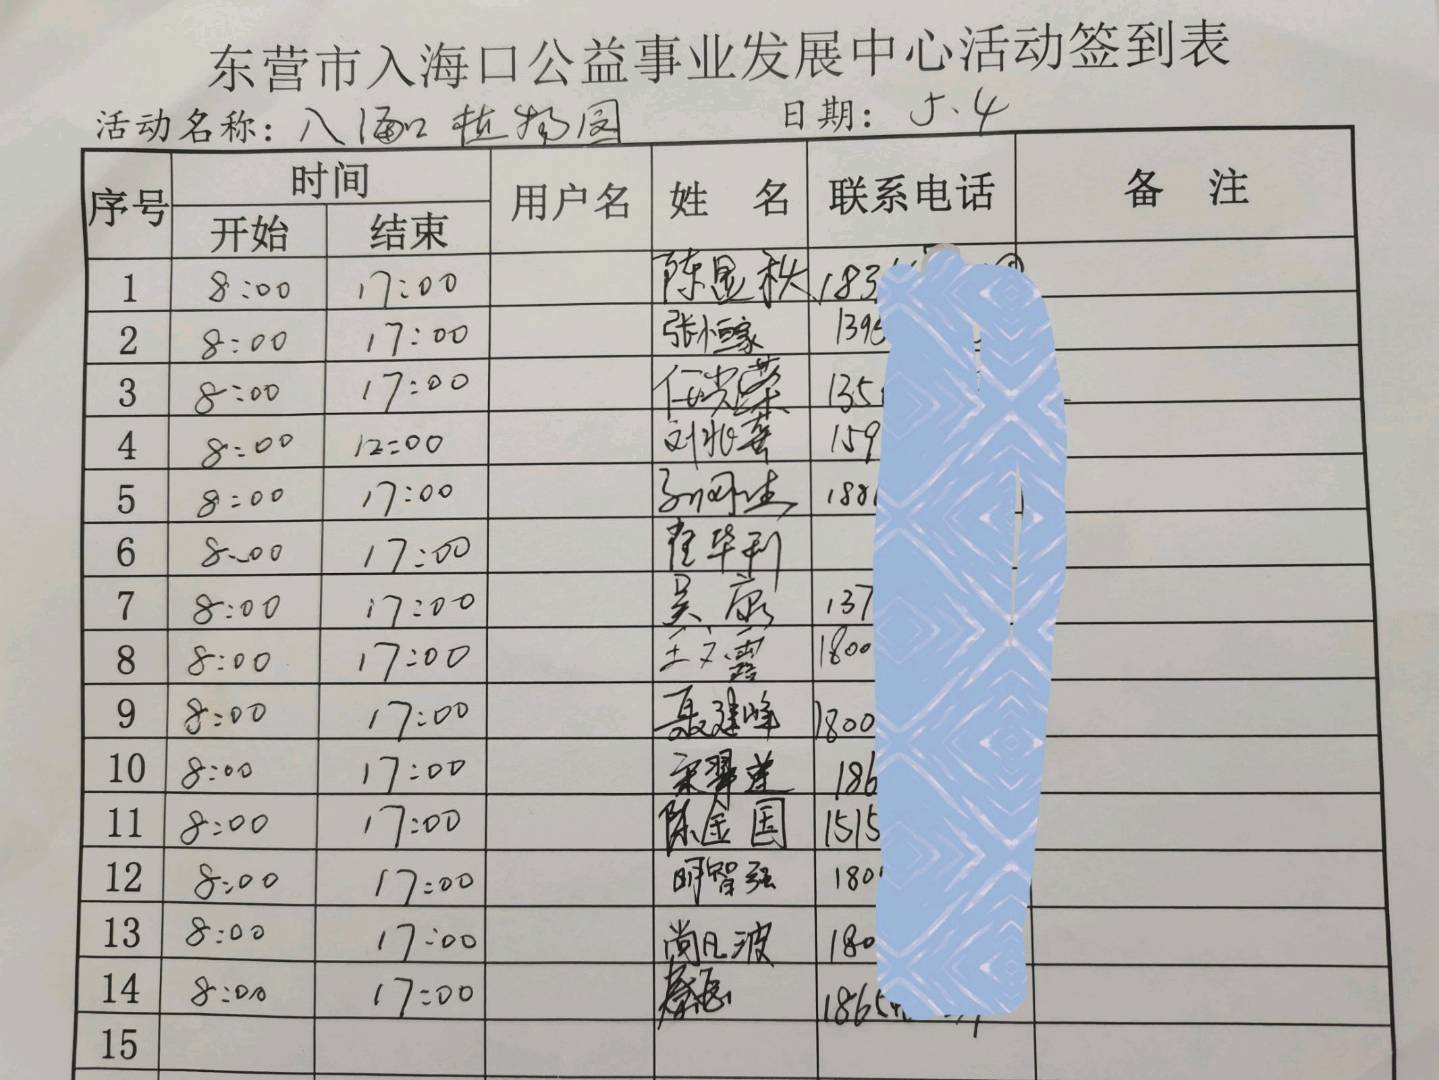 东营市入海口公益事业发展中心活动签到表
活动名称：入海口植物园 日期：5.4
序号 时间 用户名 姓 名 联系电话 备 注
开始 结束
1 8:00 17:00 陈显秋 183
2 8:00 17:00 张恒家 139
3 8:00 17:00 任光荣 135
4 8:00 12:00 刘兆喜 159
5 8:00 17:00 188
6 8:00 17:00 程华利
7 8:00 17:00 吴康 137
8 8:00 17:00 王文霞 1800
9 8:00 17:00 聂建峰 1800
10 8:00 17:00 宋翠莲 186
11 8:00 17:00 陈金国 1515
12 8:00 17:00 明智强 180
13 8:00 17:00 尚凡波 180
14 8:00 17:00 1865
15